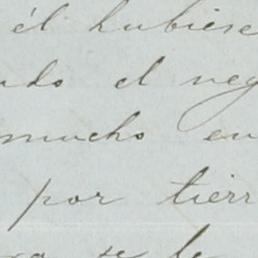 él hubiese
ndo el neg
mucho en
por tierr
se le